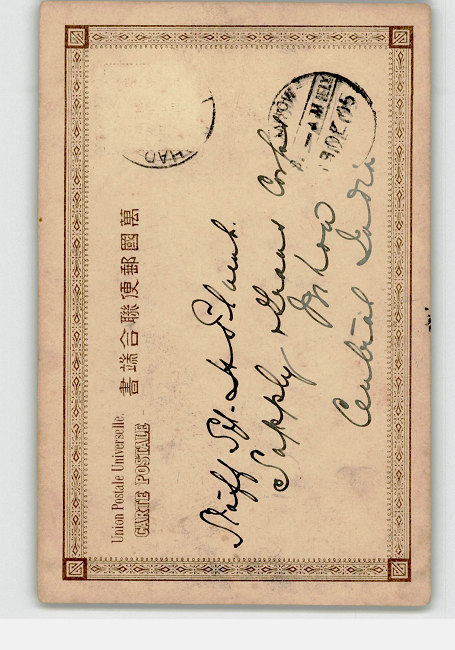 萬國郵便聯合端書
Union Postale Universelle.
CARTE POSTALE
MHOW
19 DE 05
Staff Sgt. H
Supply & Trans Corps
Mhow
Central India